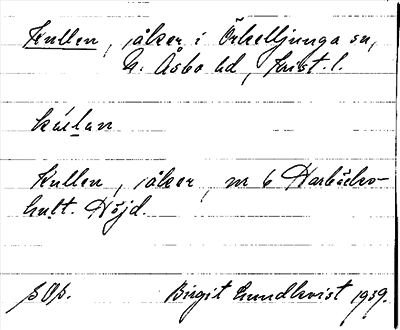 Kullen, jåker i Örkelljunga sn,
N. Åsbo hd, Krist. l.
Kullen, jåker, nr 6 Harbäcks-
hult. Höjd.
Birgit Lundkvist 1939.